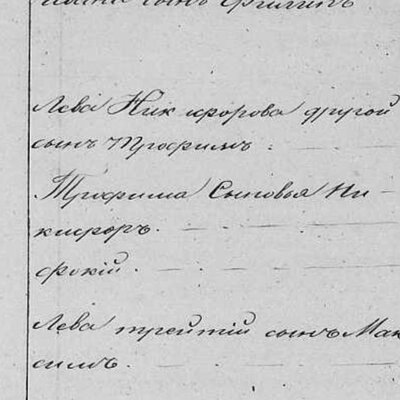 сынъ Филипъ
Лева Никифорова другой
сынъ Трофимъ :
Трофима Сыновья Ни-
кифоръ.
Лева третiй сынъ Мак
симъ.